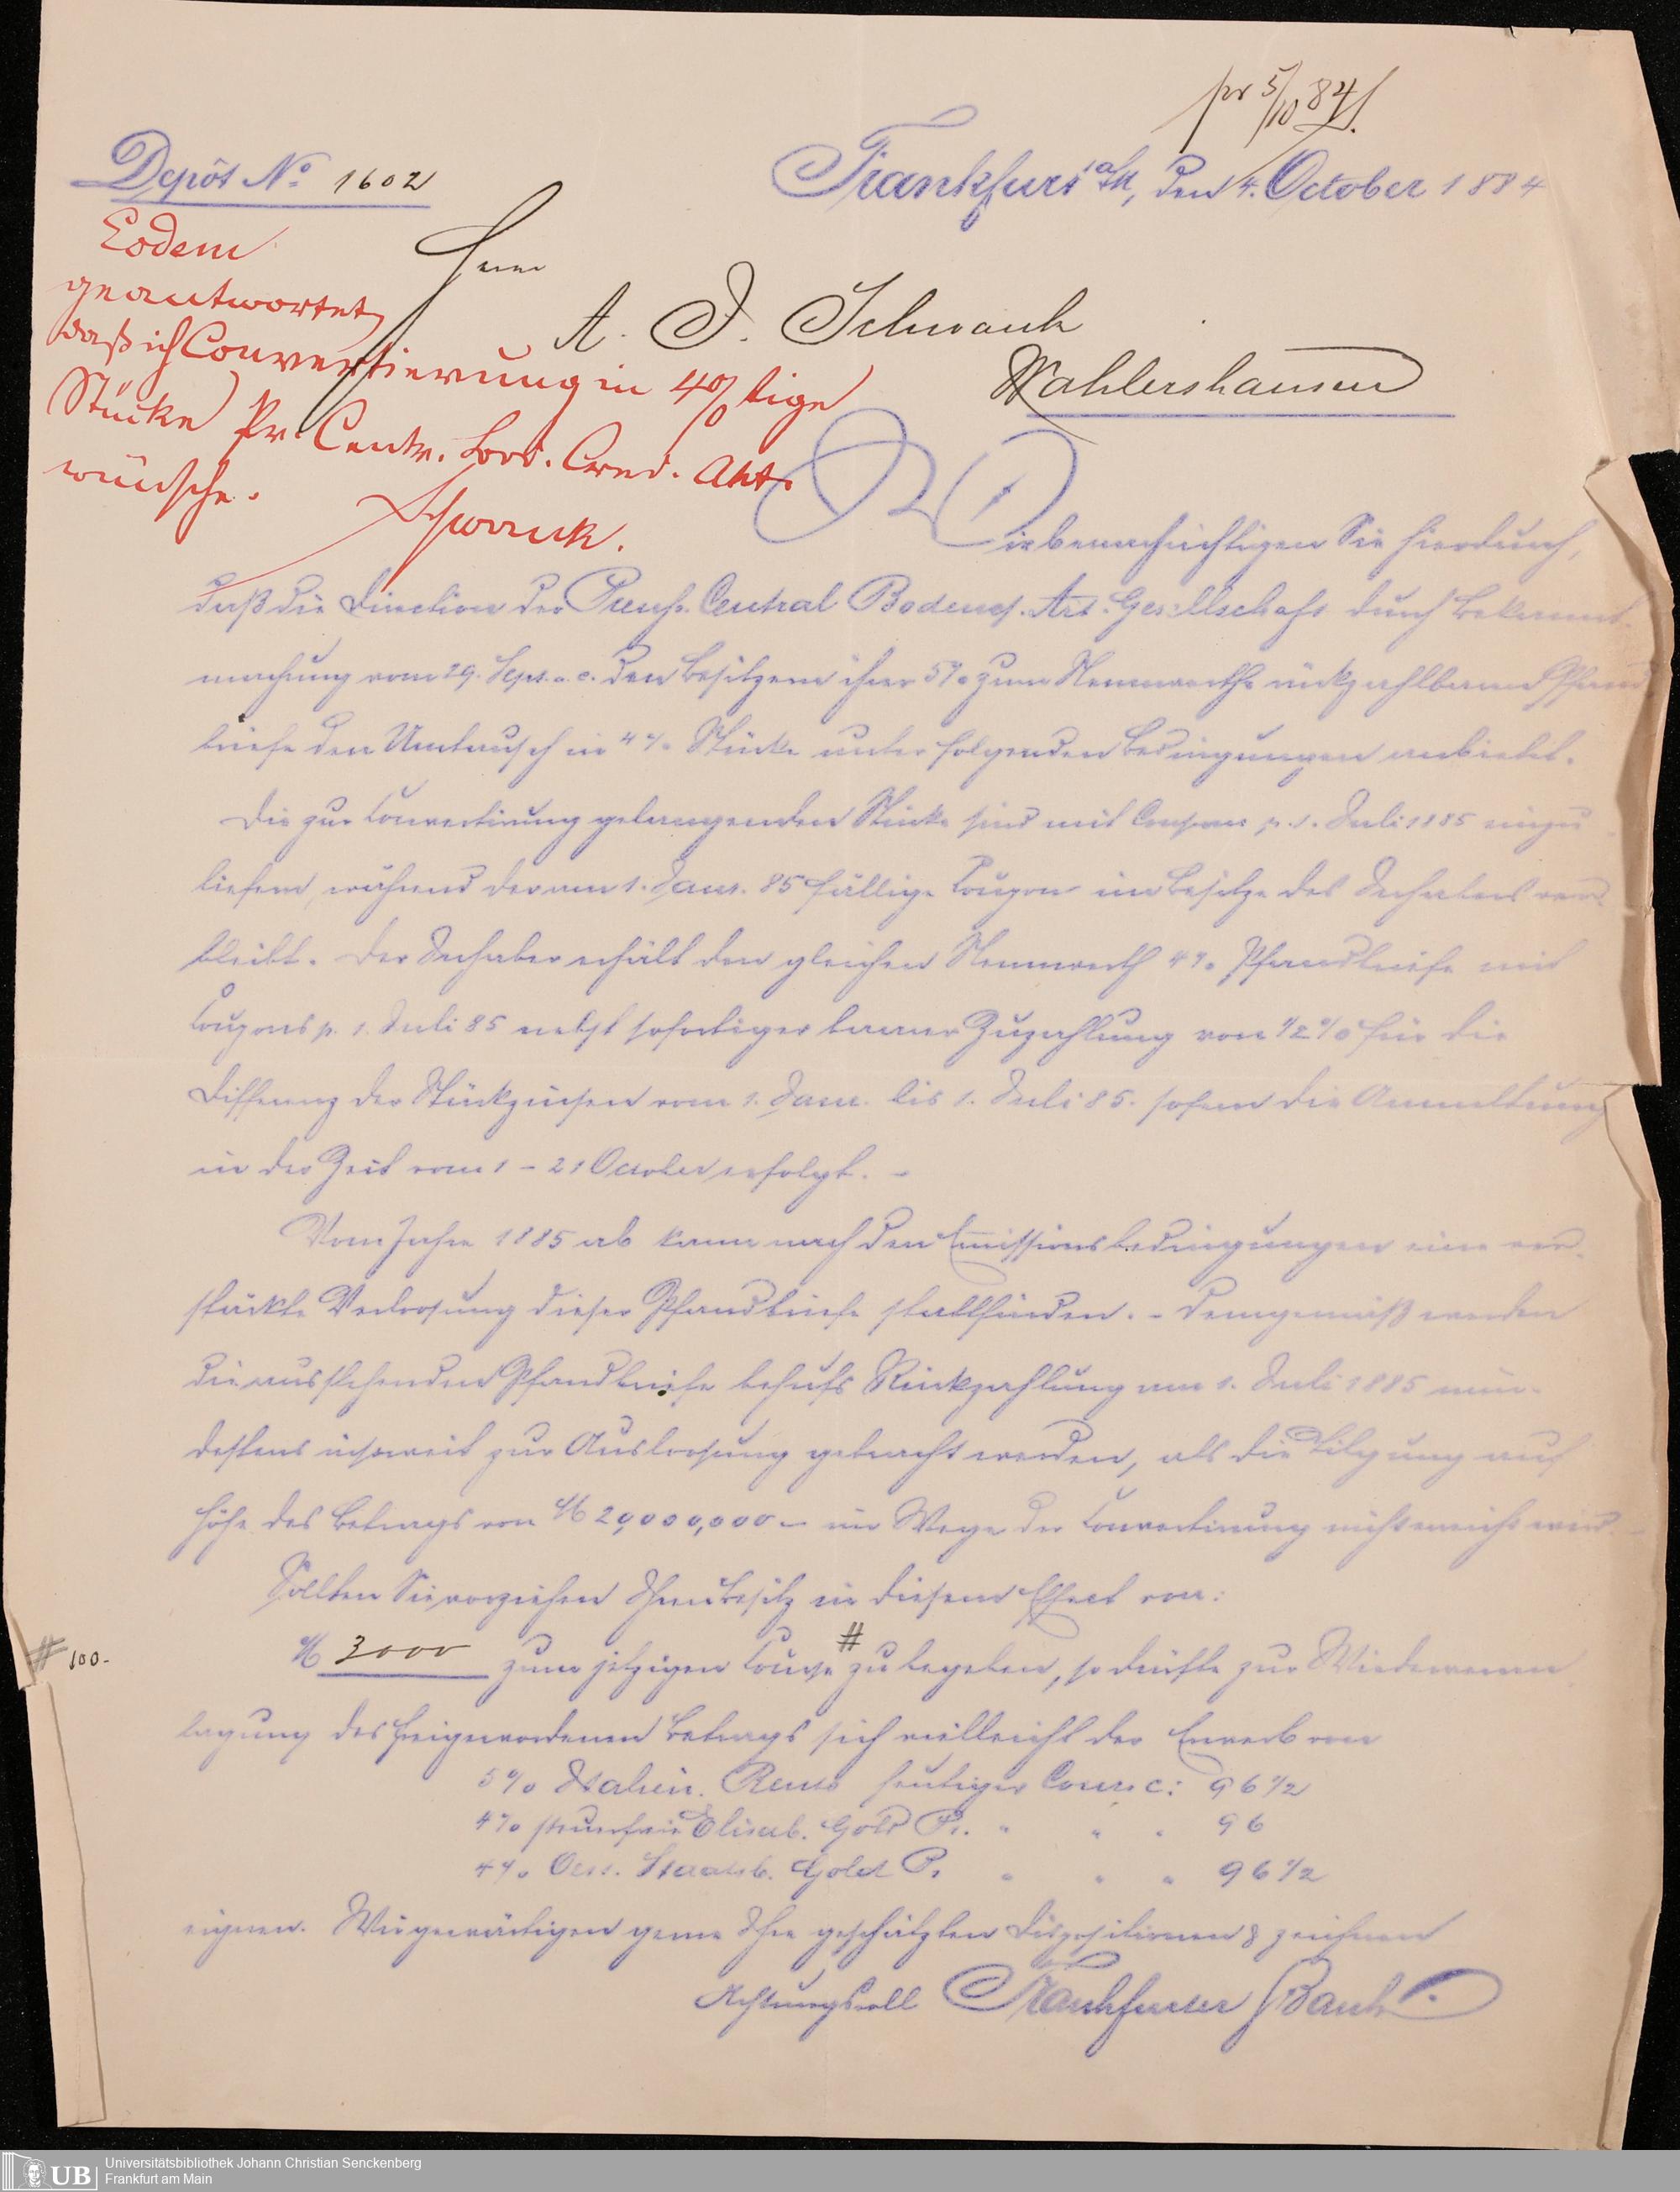 pr 5/10 84
Depôt No. 1602
Frankfurt a/M, den 4. October 1884
Eodem
geantwortet,
daß ich Convertierung in 4% tige
Stücke Pr. Centr. Bod. Cred. Akt.
wünsche.
Schwank.
Herrn
A. J. Schwank
Wahlershausen
Wir benachrichtigen Sie hierdurch,
daß die Direction der Preuß. Central Bodencr. Act. Gesellschaft durch Bekannt-
machung vom 29. Sept. a. c. den Besitzern ihrer 5% zum Nennwerthe rückzahlbaren Pfand
briefe den Umtausch in 4% Stücke unter folgenden Bedingungen anbietet.
Die zur Convertirung gelangenden Stücke sind mit Coupons p. 1. Juli 1885 einzu
liefern, während der am 1. Janr. 85 fällige Coupon im Besitze des Inhabers ver-
bleibt. Der Inhaber erhält den gleichen Nennwerth 4% Pfandbriefe mit
Coupons p. 1. Juli 85 nebst sofortiger baarer Zuzahlung von 1/2% für die
Differenz der Stückzinsen vom 1. Janr. bis 1. Juli 85. sofern die Anmeldung
in der Zeit vom 1 - 21 October erfolgt. -
Vom Jahre 1885 ab kann nach den Emissionsbedingungen eine ver-
stärkte Verloosung dieser Pfandbriefe stattfinden. - Demgemäß werden
die ausstehenden Pfandbriefe behufs Rückzahlung am 1. Juli 1885 min-
destens insoweit zur Ausloosung gebracht werden, als die Tilgung auf
Höhe des Betrags von M 20,000,000 - im Wege der Convertirung nicht erreicht wird -
Sollten Sie vorziehen Ihren Besitz in diesem Effect von:
# 100-
M 3000 zum jetzigen Course # zu begeben, so dürfte zur Wiederanan
lagung des freigewordenen Betrags sich vielleicht der Erwerb von
5% Italien. Rente heutiger Cours c: 96 1/2
4% steuerfreie Elisab. Gold Pr. " " " 96
4% Oest. Staatsb. Gold Pr " " " 96 1/2
eignen. Wir gewärtigen gerne Ihre geschätzten Dispositionen & zeichnen
Achtungsvoll Frankfurter Bank.
UB
Universitätsbibliothek Johann Christian Senckenberg
Frankfurt am Main